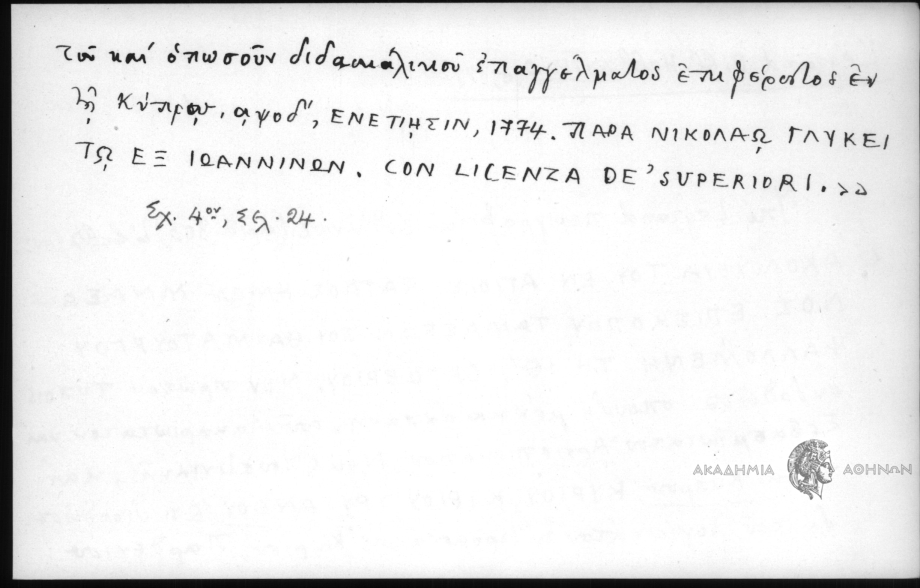 τοῦ καὶ ὁπωσοῦν διδασκαλικοῦ ἐπαγγέλματος ἐπιφέροντος ἐν
τῇ Κύπρῳ, αψοδ', ΕΝΕΤΙΗΣΙΝ, 1774. ΠΑΡΑ ΝΙΚΟΛΑῼ ΓΛΥΚΕΙ
Τῼ ΕΞ ΙΩΑΝΝΙΝΩΝ. CON LICENZA DE' SUPERIORI.»
Σχ. 4ον, Σελ. 24.
ΑΚΑΔΗΜΙΑ ΑΘΗΝΩΝ